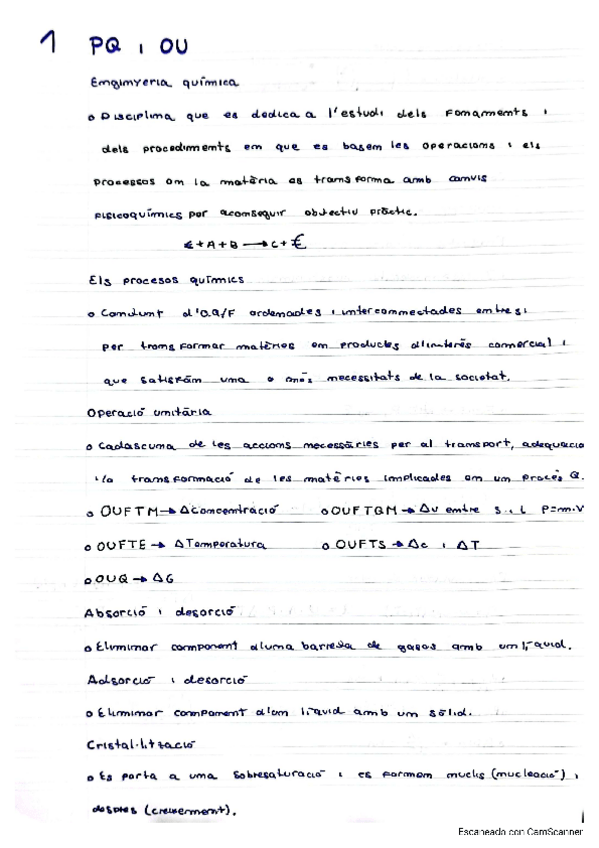 1 PQ i OU
Enginyeria química
o Disciplina que es dedica a l'estudi dels fonaments i
dels procediments en que es basen les operacions i els
processos on la matèria es transforma amb canvis
fisicoquímics per aconseguir objectiu pràctic.
€ + A + B → C + €
Els procesos químics
o Conjunt d'O.Q/F ordenades i interconnectades entre si
per transformar matèries en productes d'interès comercial i
que satisfan una o més necessitats de la societat.
Operació unitària
o Cadascuna de les accions necessàries per al transport, adequació
i/o transformació de les matèries implicades en un procés Q.
o OUFTM → Δconcentració o OUFTQM → Δv entre S i L P=m·V
o OUFTE → ΔTemperatura o OUFTS → Δc i ΔT
o OUQ → ΔG
Absorció i desorció
o Eliminar component d'una barreja de gasos amb un líquid.
Adsorció i desorció
o Eliminar component d'un líquid amb un sòlid.
Cristal·lització
o Es porta a una sobresaturació i es formen nuclis (nucleació) i
després (creixement).
Escaneado con CamScanner